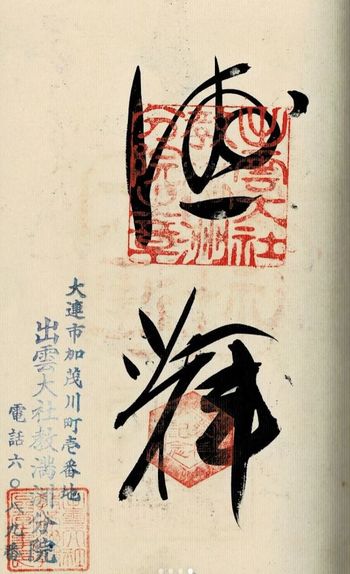 輝
出雲大社
教満洲
分院之章
大連市加茂川町壱番地
出雲大社教満洲分院
電話六〇八九番